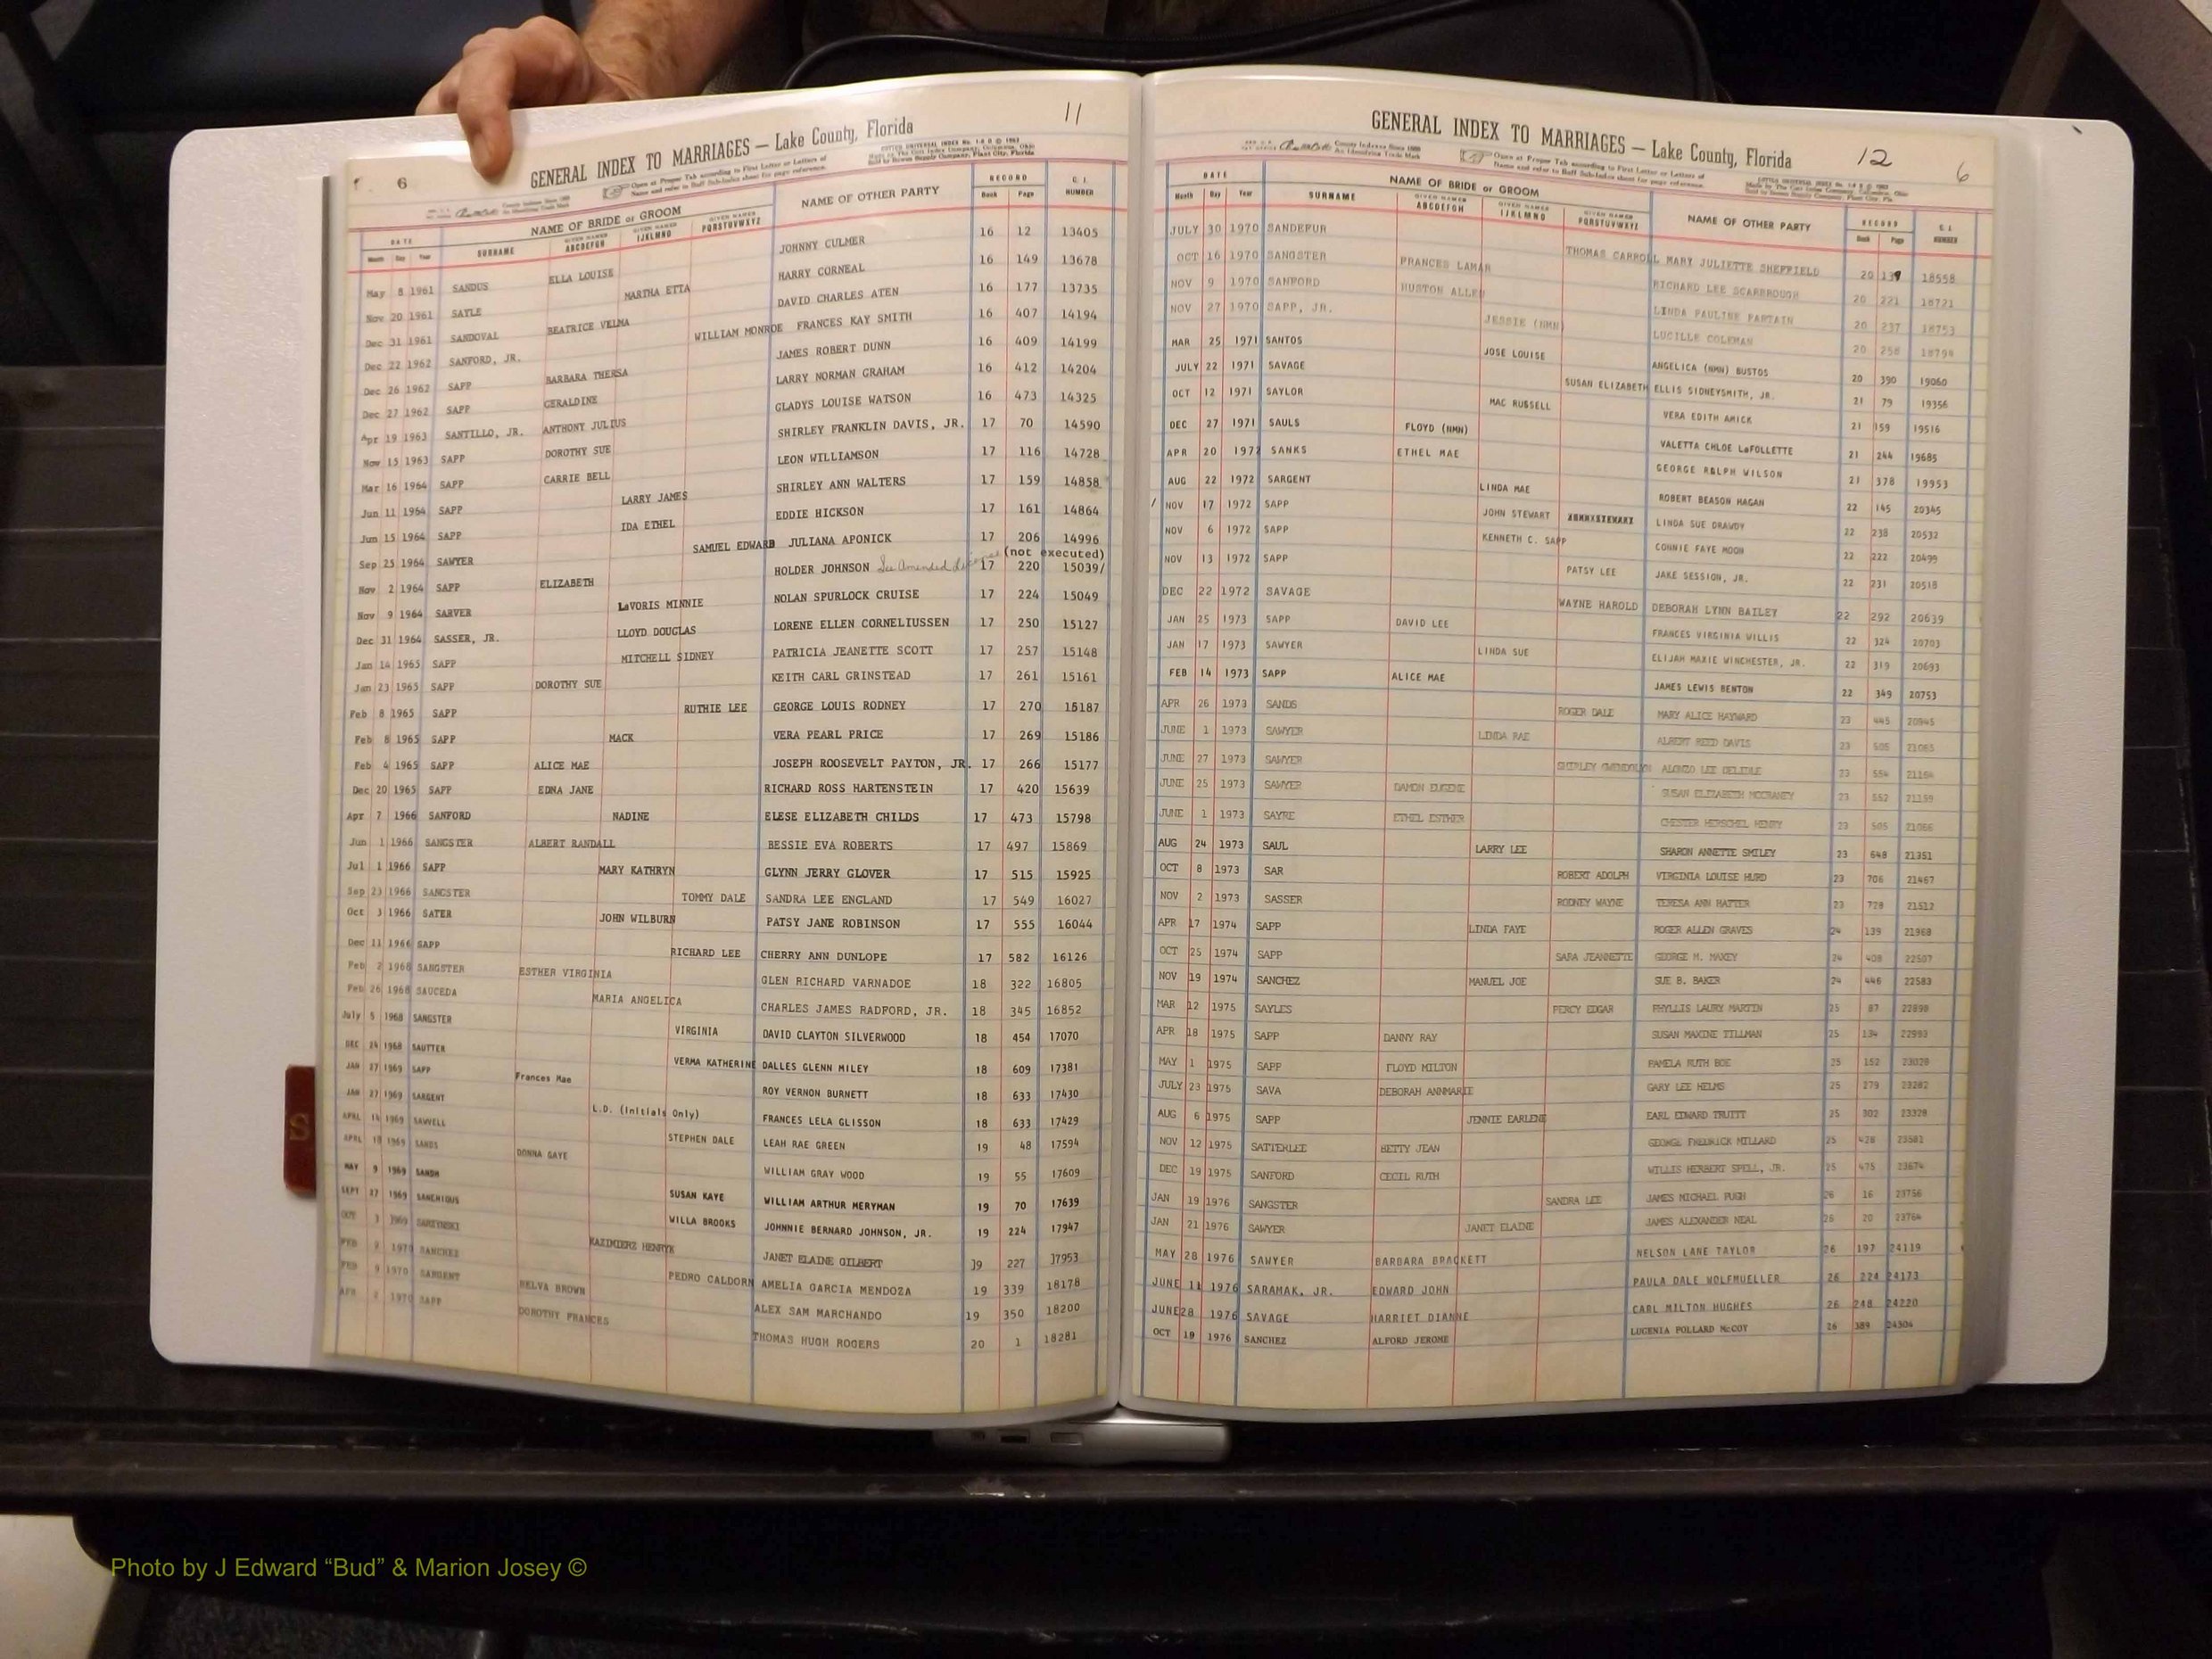 11
6
GENERAL INDEX TO MARRIAGES — Lake County, Florida
DATE NAME OF BRIDE or GROOM NAME OF OTHER PARTY RECORD G. I. NUMBER
Month Day Year SURNAME GIVEN NAMES ABCDEFGH GIVEN NAMES IJKLMNO GIVEN NAMES PQRSTUVWXYZ Book Page
May 8 1961 SANDUS ELLA LOUISE JOHNNY CULMER 16 12 13405
Nov 20 1961 SAYLE MARTHA ETTA HARRY CORNEAL 16 149 13678
Dec 31 1961 SANDOVAL BEATRICE VELMA DAVID CHARLES ATEN 16 177 13735
Dec 22 1962 SANFORD, JR. WILLIAM MONROE FRANCES KAY SMITH 16 407 14194
Dec 26 1962 SAPP BARBARA THERSA JAMES ROBERT DUNN 16 409 14199
Dec 27 1962 SAPP GERALDINE LARRY NORMAN GRAHAM 16 412 14204
Apr 19 1963 SANTILLO, JR. ANTHONY JULIUS GLADYS LOUISE WATSON 16 473 14325
Nov 15 1963 SAPP DOROTHY SUE SHIRLEY FRANKLIN DAVIS, JR. 17 70 14590
Mar 16 1964 SAPP CARRIE BELL LEON WILLIAMSON 17 116 14728
Jun 11 1964 SAPP LARRY JAMES SHIRLEY ANN WALTERS 17 159 14858
Jun 15 1964 SAPP IDA ETHEL EDDIE HICKSON 17 161 14864
Sep 25 1964 SAWYER SAMUEL EDWARD JULIANA APONICK 17 206 14996
(not executed)
Nov 2 1964 SAPP ELIZABETH HOLDER JOHNSON See Amended License 17 220 15039/
Nov 9 1964 SARVER LaVORIS MINNIE NOLAN SPURLOCK CRUISE 17 224 15049
Dec 31 1964 SASSER, JR. LLOYD DOUGLAS LORENE ELLEN CORNELIUSSEN 17 250 15127
Jan 14 1965 SAPP MITCHELL SIDNEY PATRICIA JEANETTE SCOTT 17 257 15148
Jan 23 1965 SAPP DOROTHY SUE KEITH CARL GRINSTEAD 17 261 15161
Feb 8 1965 SAPP RUTHIE LEE GEORGE LOUIS RODNEY 17 270 15187
Feb 8 1965 SAPP MACK VERA PEARL PRICE 17 269 15186
Feb 4 1965 SAPP ALICE MAE JOSEPH ROOSEVELT PAYTON, JR. 17 266 15177
Dec 20 1965 SAPP EDNA JANE RICHARD ROSS HARTENSTEIN 17 420 15639
Apr 7 1966 SANFORD NADINE ELESE ELIZABETH CHILDS 17 473 15798
Jun 1 1966 SANGSTER ALBERT RANDALL BESSIE EVA ROBERTS 17 497 15869
Jul 1 1966 SAPP MARY KATHRYN GLYNN JERRY GLOVER 17 515 15925
Sep 23 1966 SANGSTER TOMMY DALE SANDRA LEE ENGLAND 17 549 16027
Oct 3 1966 SATER JOHN WILBURN PATSY JANE ROBINSON 17 555 16044
Dec 11 1966 SAPP RICHARD LEE CHERRY ANN DUNLOPE 17 582 16126
Feb 2 1968 SANGSTER ESTHER VIRGINIA GLEN RICHARD VARNADOE 18 322 16805
Feb 26 1968 SAUCEDA MARIA ANGELICA CHARLES JAMES RADFORD, JR. 18 345 16852
July 5 1968 SANGSTER VIRGINIA DAVID CLAYTON SILVERWOOD 18 454 17070
DEC 24 1968 SAUTTER VERMA KATHERINE DALLES GLENN MILEY 18 609 17381
JAN 27 1969 SAPP Frances Mae ROY VERNON BURNETT 18 633 17430
JAN 27 1969 SARGENT L.D. (Initials Only) FRANCES LELA GLISSON 18 633 17429
APRL 14 1969 SAWELL STEPHEN DALE LEAH RAE GREEN 19 48 17594
APRL 18 1969 SANDS DONNA GAYE WILLIAM GRAY WOOD 19 55 17609
MAY 9 1969 SUSAN KAYE WILLIAM ARTHUR MERYMAN 19 70 17639
SEPT 27 1969 SANCHIOUS WILLA BROOKS JOHNNIE BERNARD JOHNSON, JR. 19 224 17947
OCT 3 1969 KAZIMIERZ HENRYK JANET ELAINE GILBERT 19 227 17953
FEB 2 1970 SANCHEZ PEDRO CALDORN AMELIA GARCIA MENDOZA 19 339 18178
FEB 9 1970 SARGENT BELVA BROWN ALEX SAM MARCHANDO 19 350 18200
APR 2 1970 SAPP DOROTHY FRANCES THOMAS HUGH ROGERS 20 1 18281
S
GENERAL INDEX TO MARRIAGES — Lake County, Florida
12
6
DATE NAME OF BRIDE or GROOM NAME OF OTHER PARTY RECORD G. I. NUMBER
Month Day Year SURNAME GIVEN NAMES ABCDEFGH GIVEN NAMES IJKLMNO GIVEN NAMES PQRSTUVWXYZ Book Page
JULY 30 1970 SANDEFUR THOMAS CARROLL MARY JULIETTE SHEFFIELD 20 139 18558
OCT 16 1970 SANGSTER FRANCES LAMAR RICHARD LEE SCARBROUGH 20 221 18721
NOV 9 1970 SANFORD HUSTON ALLEN LINDA PAULINE PARTAIN 20 237 18753
NOV 27 1970 SAPP, JR. JESSIE (NMN) LUCILLE COLEMAN 20 258 18794
MAR 25 1971 SANTOS JOSE LOUISE ANGELICA (NMN) BUSTOS 20 390 19060
JULY 22 1971 SAVAGE SUSAN ELIZABETH ELLIS SIDNEYSMITH, JR. 21 79 19356
OCT 12 1971 SAYLOR MAC RUSSELL VERA EDITH AMICK 21 159 19516
DEC 27 1971 SAULS FLOYD (NMN) VALETTA CHLOE LaFOLLETTE 21 244 19685
APR 20 1972 SANKS ETHEL MAE GEORGE RALPH WILSON 21 378 19953
AUG 22 1972 SARGENT LINDA MAE ROBERT BEASON HAGAN 22 145 20345
/ NOV 17 1972 SAPP JOHN STEWART LINDA SUE DRAWDY 22 238 20532
NOV 6 1972 SAPP KENNETH C. SAPP CONNIE FAYE MOON 22 222 20499
NOV 13 1972 SAPP PATSY LEE JAKE SESSION, JR. 22 231 20518
DEC 22 1972 SAVAGE WAYNE HAROLD DEBORAH LYNN BAILEY 22 292 20639
JAN 25 1973 SAPP DAVID LEE FRANCES VIRGINIA WILLIS 22 324 20703
JAN 17 1973 SAWYER LINDA SUE ELIJAH MAXIE WINCHESTER, JR. 22 319 20693
FEB 14 1973 SAPP ALICE MAE JAMES LEWIS BENTON 22 349 20753
APR 26 1973 SANDS ROGER DALE MARY ALICE HAYWARD 23 445 20945
JUNE 1 1973 SAWYER LINDA RAE ALBERT REED DAVIS 23 505 21065
JUNE 27 1973 SAWYER SHIRLEY GWENDOLYN ALONZO LEE DELISLE 23 554 21164
JUNE 25 1973 SAWYER DAMON EUGENE SUSAN ELIZABETH MCCRANEY 23 552 21159
JUNE 1 1973 SAYRE ETHEL ESTHER CHESTER HERSCHEL HENRY 23 505 21066
AUG 24 1973 SAUL LARRY LEE SHARON ANNETTE SMILEY 23 648 21351
OCT 8 1973 SAR ROBERT ADOLPH VIRGINIA LOUISE HURD 23 706 21467
NOV 2 1973 SASSER RODNEY WAYNE TERESA ANN HATTER 23 728 21512
APR 17 1974 SAPP LINDA FAYE ROGER ALLEN GRAVES 24 139 21968
OCT 25 1974 SAPP SARA JEANNETTE GEORGE M. MAXEY 24 408 22507
NOV 19 1974 SANCHEZ MANUEL JOE SUE B. BAKER 24 446 22583
MAR 12 1975 SAYLES PERCY EDGAR PHYLLIS LAURY MARTIN 25 87 22898
APR 18 1975 SAPP DANNY RAY SUSAN MAXINE TILLMAN 25 134 22993
MAY 1 1975 SAPP FLOYD MILTON PAMELA RUTH BOE 25 152 23029
JULY 23 1975 SAVA DEBORAH ANNMARIE GARY LEE HELMS 25 279 23282
AUG 6 1975 SAPP JENNIE EARLENE EARL EDWARD TRUITT 25 302 23328
NOV 12 1975 SATTERLEE BETTY JEAN GEORGE FREDRICK MILLARD 25 428 23581
DEC 19 1975 SANFORD CECIL RUTH WILLIS HERBERT SPELL, JR. 25 475 23674
JAN 19 1976 SANGSTER SANDRA LEE JAMES MICHAEL PUGH 26 16 23756
JAN 21 1976 SAWYER JANET ELAINE JAMES ALEXANDER NEAL 26 20 23764
MAY 28 1976 SAWYER BARBARA BRACKETT NELSON LANE TAYLOR 26 197 24119
JUNE 11 1976 SARAMAK, JR. EDWARD JOHN PAULA DALE WOLFMUELLER 26 224 24173
JUNE 28 1976 SAVAGE HARRIET DIANNE CARL MILTON HUGHES 26 248 24220
OCT 19 1976 SANCHEZ ALFORD JEROME LUGENIA POLLARD McCOY 26 389 24504
Photo by J Edward “Bud” & Marion Josey ©